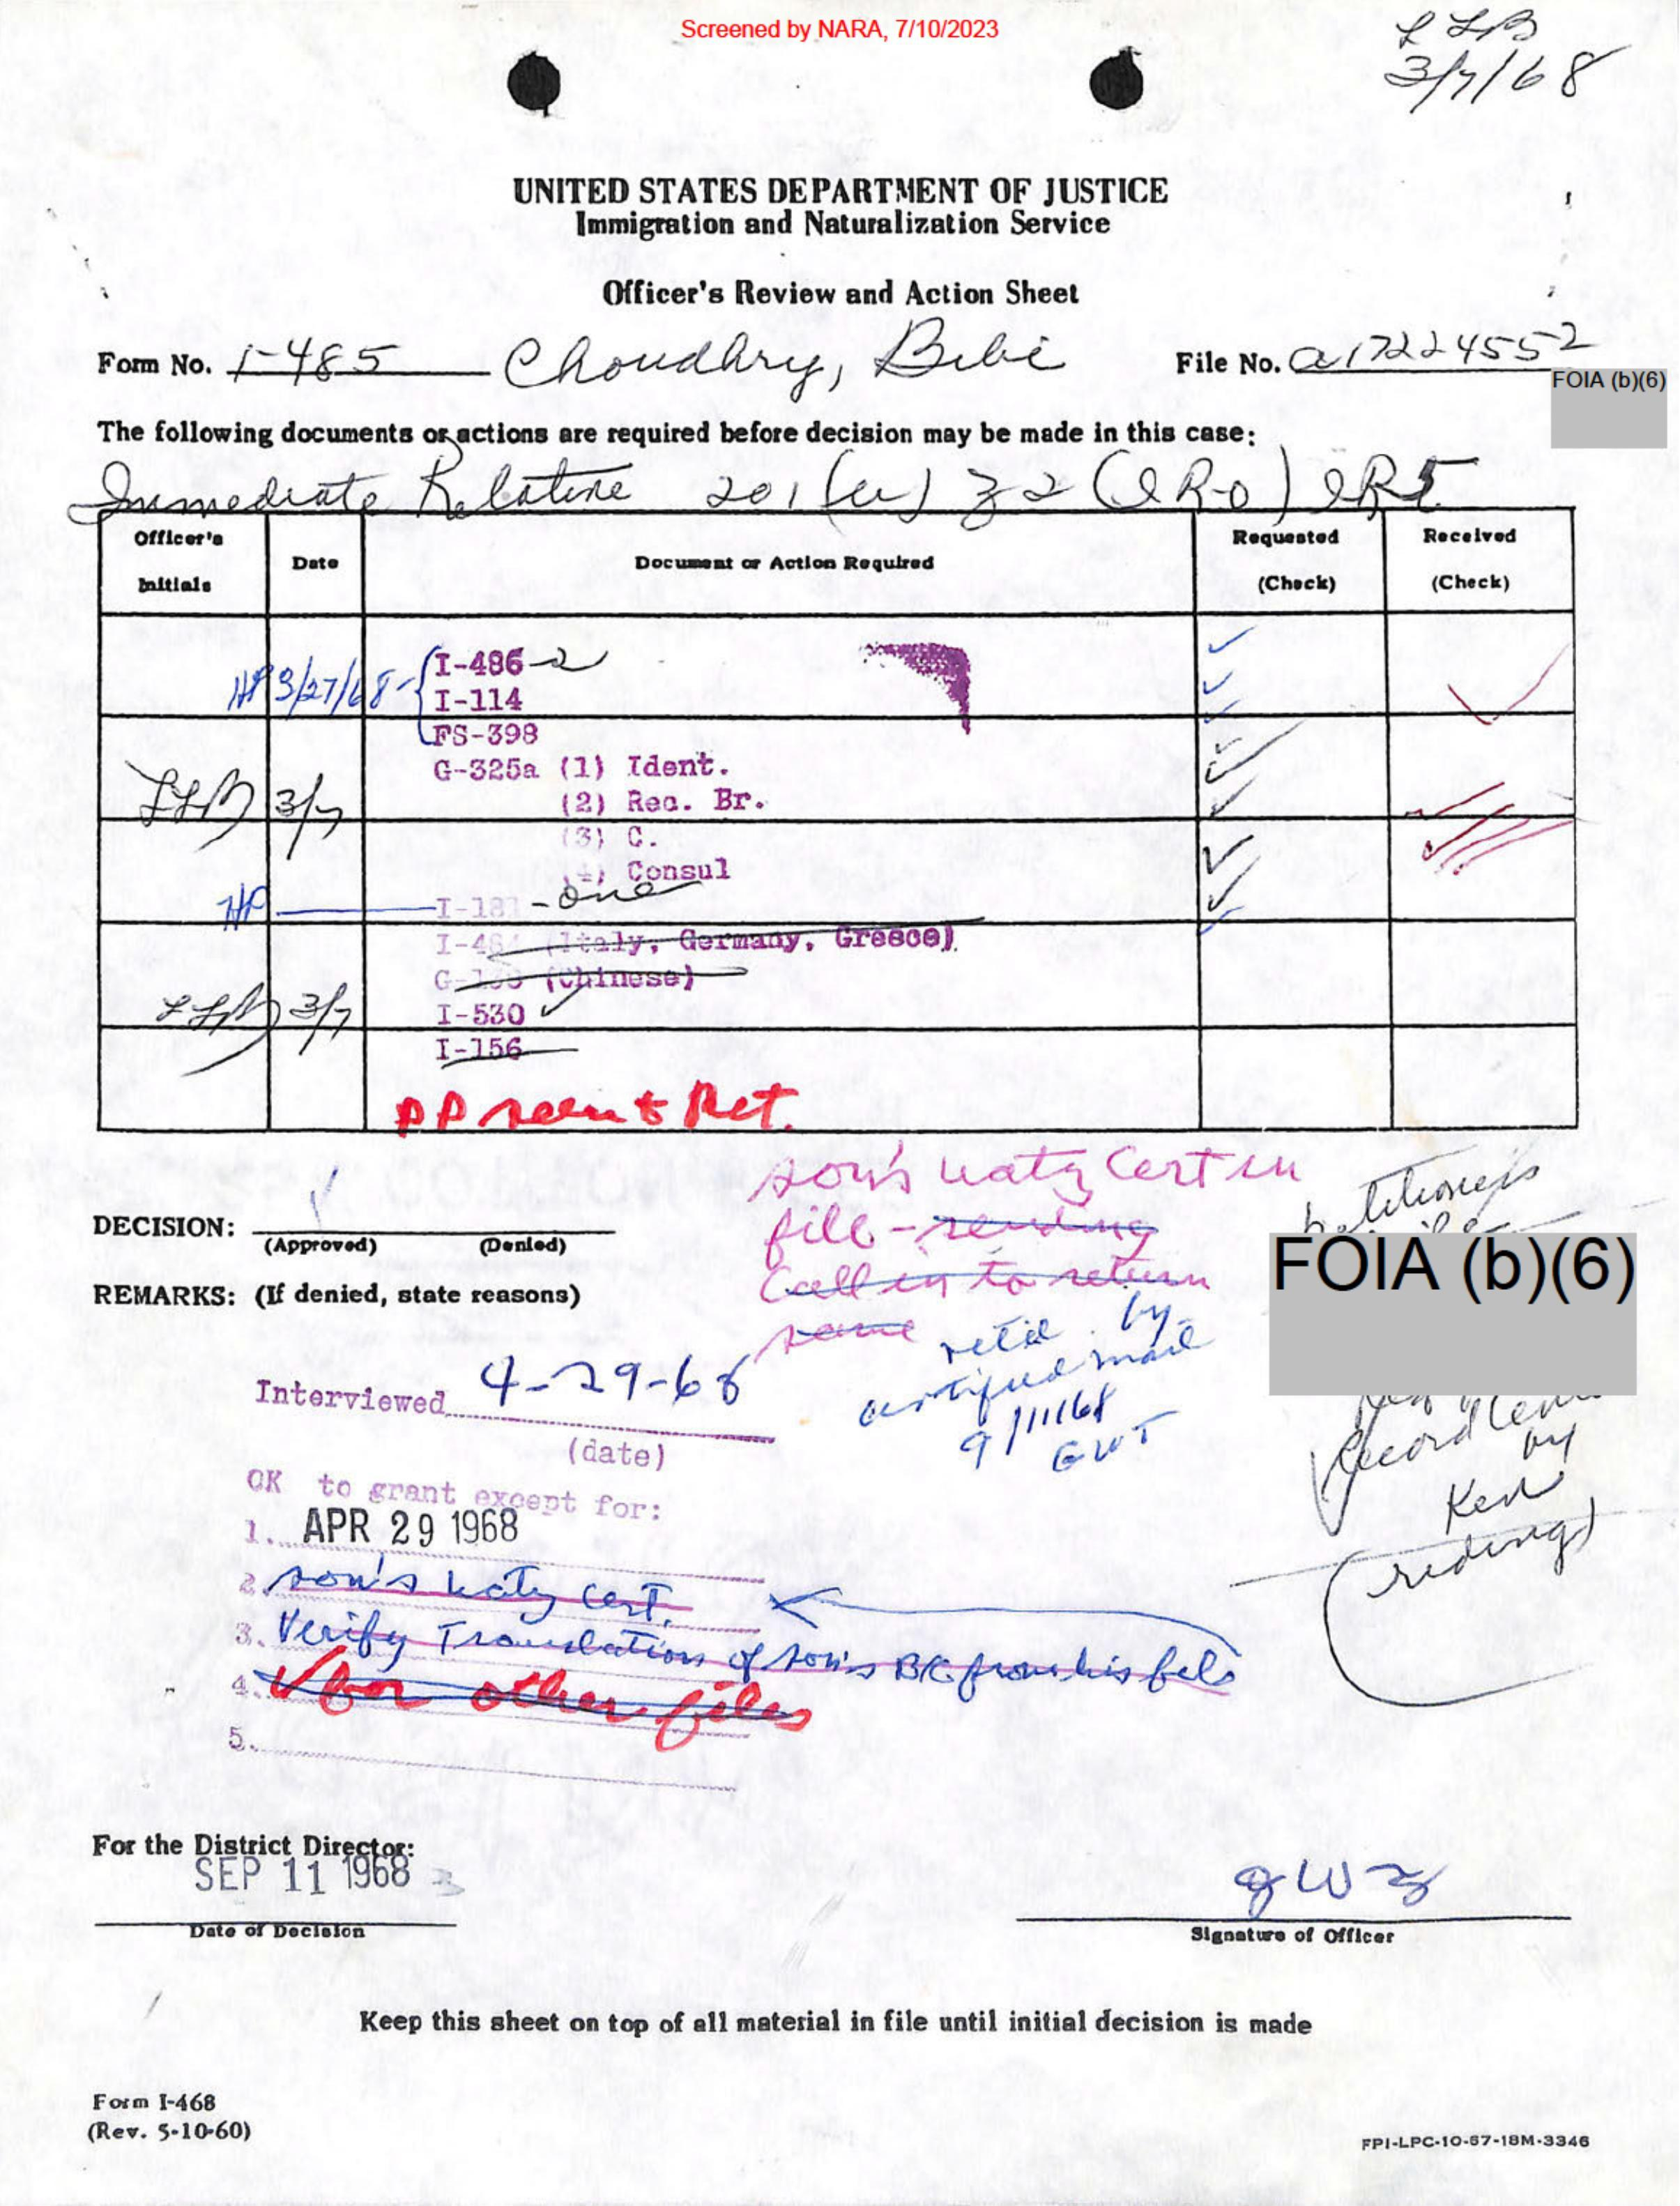 Screened by NARA, 7/10/2023
LLB
3/7/68
UNITED STATES DEPARTMENT OF JUSTICE
Immigration and Naturalization Service
Officer's Review and Action Sheet
Form No. I-485 Choudhry, Bibi File No. a17224552
FOIA (b)(6)
The following documents or actions are required before decision may be made in this case:
Immediate Relative 201 (a) (IRO) IR5
Officer's Initials Date Document or Action Required Requested (Check) Received (Check)
I-486 - 2
HP 3/27/68 - I-114
FS-398
G-325a (1) Ident.
LLB 3/7 (2) Rec. Br.
(3) C.
(4) Consul
HP I-181 - one
I-484 (Italy, Germany, Greece)
(Chinese)
LLB 3/7 I-530 ✓
I-156
PP seen & Ret.
son's natz Cert in
file - sending
Call in to return
same
petitioner's
DECISION: (Approved) (Denied)
FOIA (b)(6)
REMARKS: (If denied, state reasons)
ret'd by
certified mail
9/11/68
GWT
Interviewed 4-29-68
(date)
Record
by
Ken
OK to grant except for:
1. APR 29 1968
2. son's natz cert.
3. Verify Translation of son's BC from his file
4. ✓ for other files
5.
For the District Director:
SEP 11 1968
Date of Decision
Signature of Officer
Keep this sheet on top of all material in file until initial decision is made
Form I-468
(Rev. 5-10-60)
FPI-LPC-10-67-18M-3346